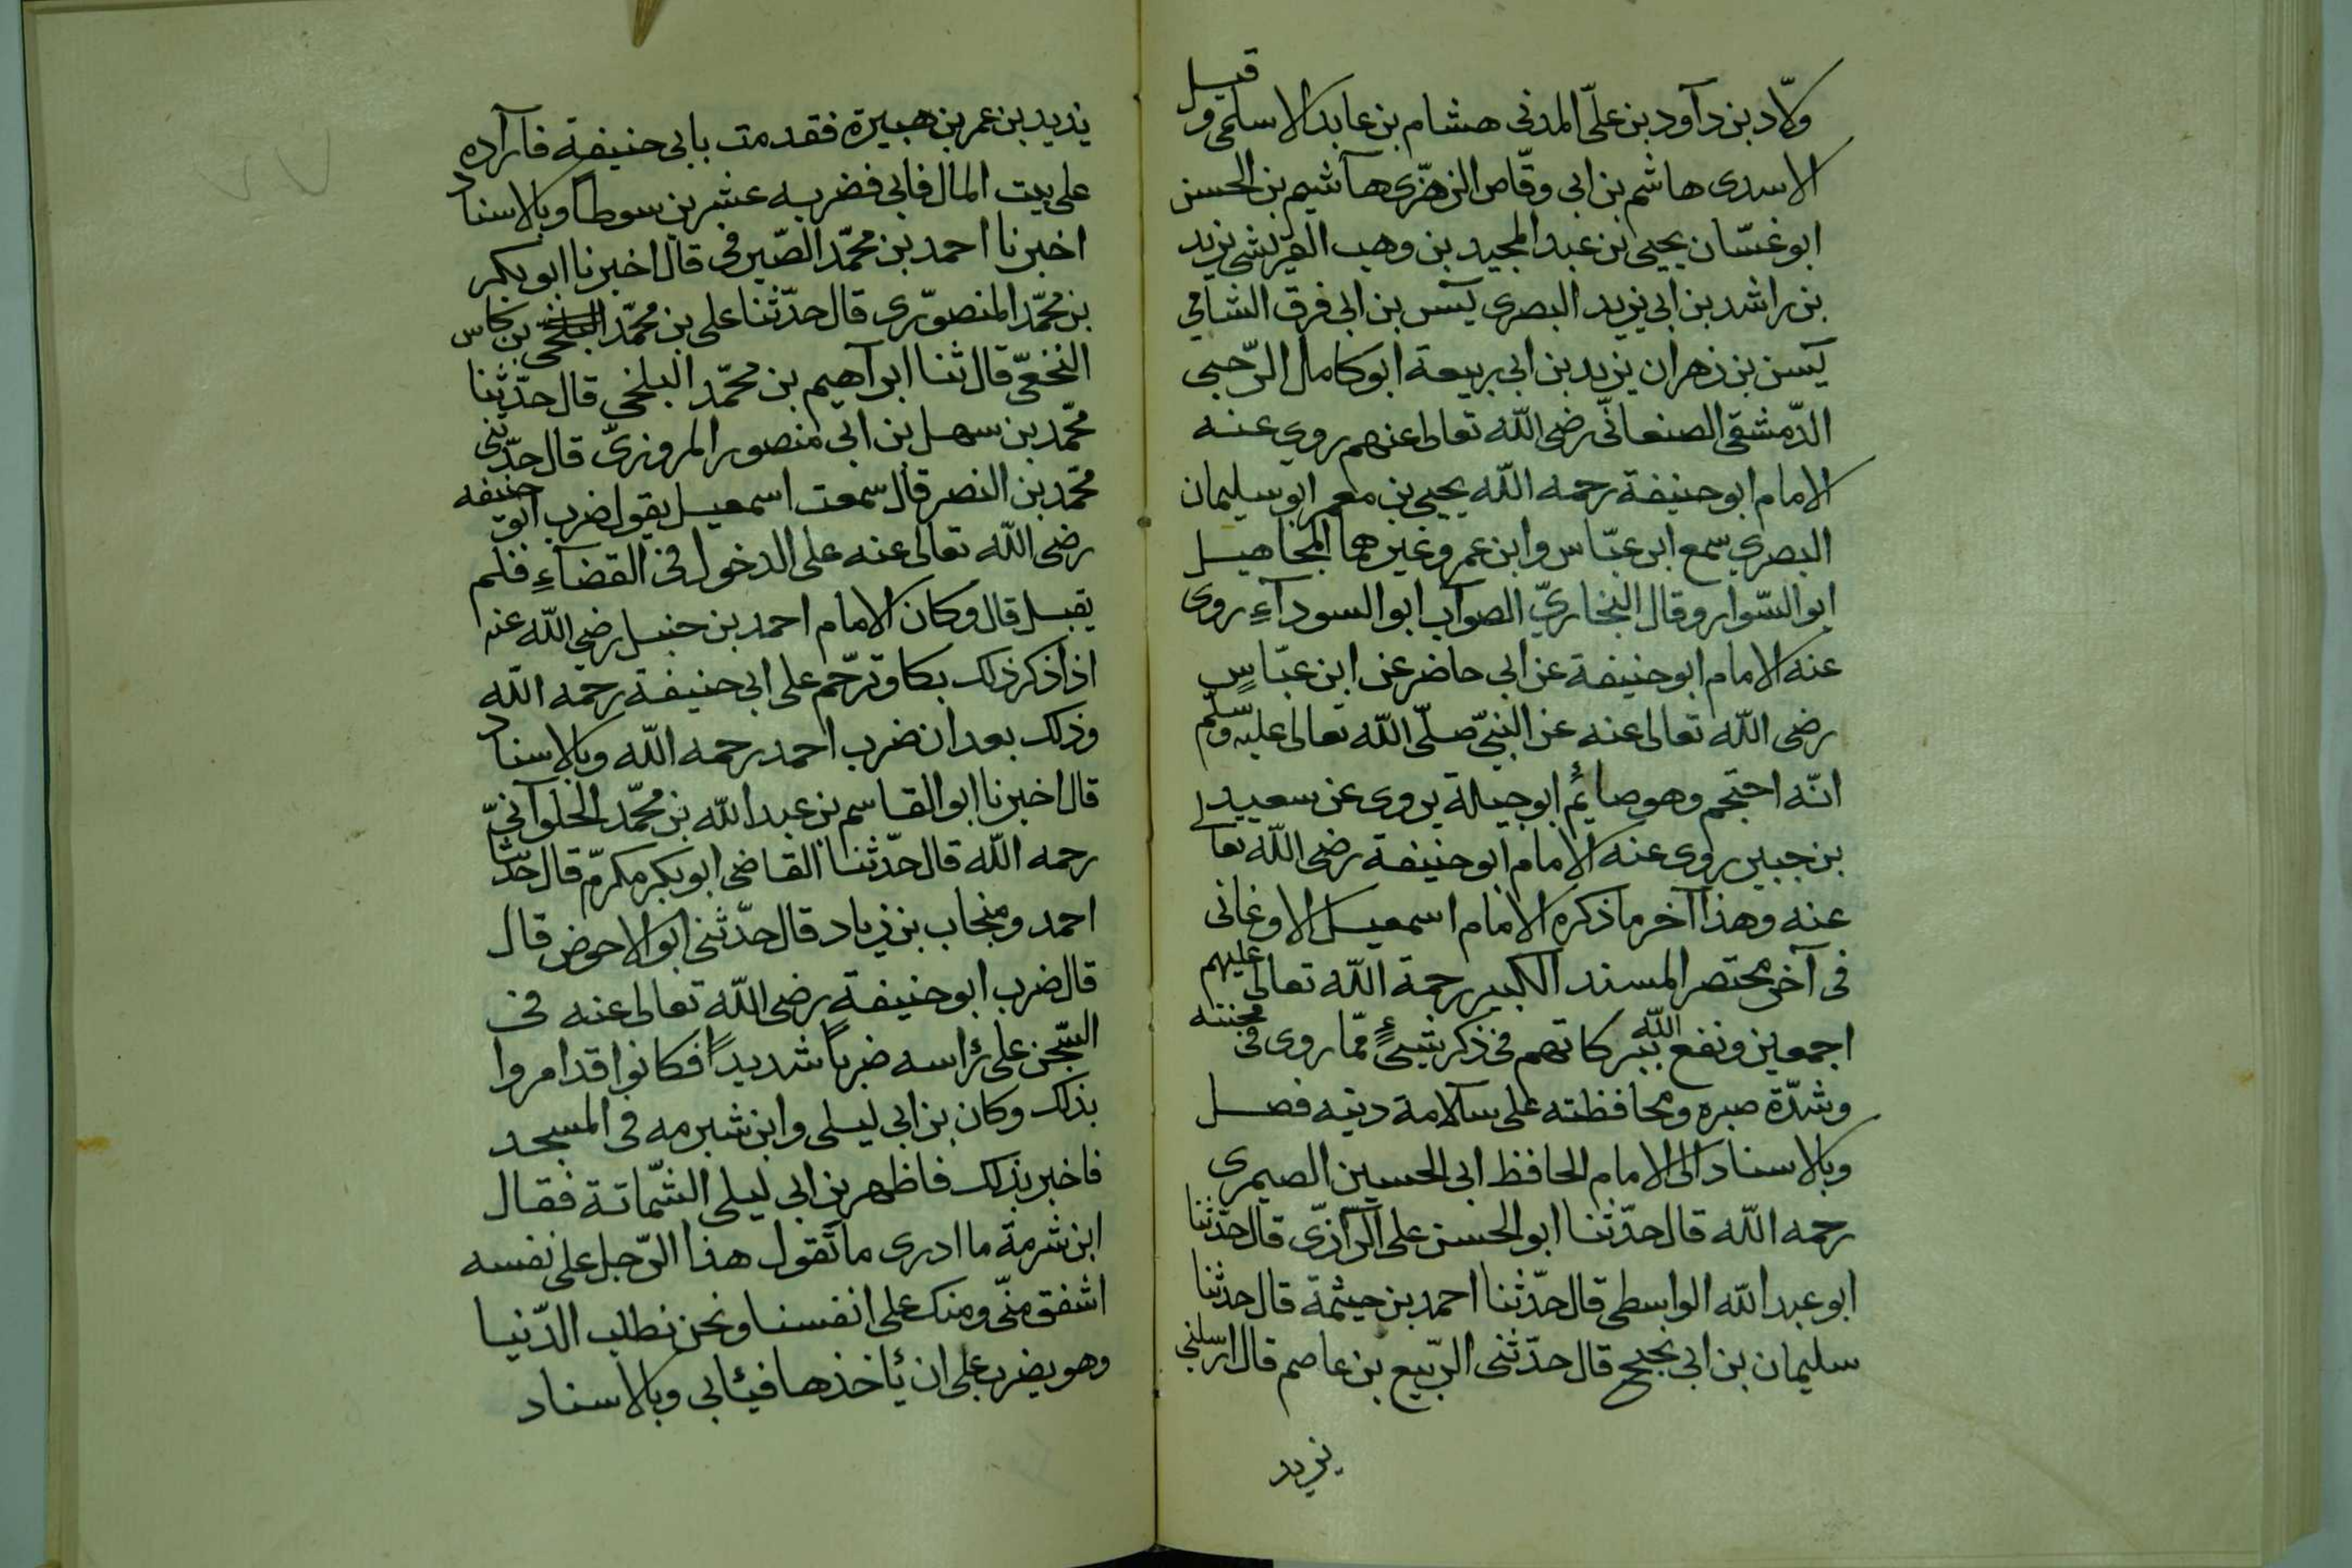 ولّاد بن دآود بن علیّ المدنی هشام بن عابد الاسلمی وقیل
الاسدی هاشم بن ابی وقّاص الزهرّی هآشیم بن الحسن
ابو غسّان یحیی بن عبد المجید بن وهب القریشی یزید
بن راشد بن ابی یزید البصری یٓس بن ابی فرق الشامی
یٓسن بن زهران یزید بن ابی ربیعة ابو کامال الرّحبی
الدّمشقی الصنعانّی رضی اللّه تعالی عنهم روی عنه
الامام ابو حنیفة رحمه اللّه یحیی بن معمر ابو سلیمان
البصری سمع ابن عبّاس وابن عمر وغیرهما المجاهیل
ابو السّوار وقال البخاریّ الصوآب ابو السودآءِ روی
عنه الامام ابو حنیفة عن ابی حاضر عن ابن عبّاسٍ
رضی اللّه تعالی عنه عن النبیّ صلّی اللّه تعالی علیه وسلّم
انّه احتجم وهو صائمٌ ابو جبالة یروی عن سعید
بن جبیر روی عنه الامام ابو حنیفة رضی اللّه تعالی
عنه وهذا آخر ما ذکره الامام اسمعیل الاوغانی
فی آخر مختصر المسند الکبیر رحمة اللّه تعالی علیهم
اجمعین ونفع اللّه ببرکاتهم فی ذکر شیءٍ ممّا روی فی محنته
وشدّة صبره ومحافظته علی سآلامة دینه فصل
وبالاسناد الی الامام الحافظ ابی الحسین الصیمری
رحمه اللّه قال حدّثنا ابو الحسن علی الرّآزیّ قال حدّثنا
ابو عبد اللّه الواسطی قال حدّثنا احمد بن حیثمة قال حدثنا
سلیمان بن ابی بجیح قال حدّثنی الرّبیع بن عاصم قال ارسلنی
یزید
یزید بن عمر بن هبیرة فقدمت بابی حنیفة فآراده
علی بیت المال فابی فضربه عشرین سوطاً وبالاسناد
اخبرنا احمد بن محمّد الصّیرفی قال اخبرنا ابو بکر
بن محمّد المنصورّی قال حدّثنا علی بن محمّد البلخیّ بن کاس
النخعیّ قال ثنا ابرآهیم بن محمّد البلخی قال حدّثنا
محمّد بن سهل بن ابی منصور المروزیّ قال حدّثنی
محمّد بن النصر قال سمعت اسمعیل یقول ضرب ابو حنیفه
رضی اللّه تعالی عنه علی الدخول فی القضآءِ فلم
یقبل قال وکان الامام احمد بن حنبل رضی اللّه عنه
اذا ذکر ذلک بکا وترحّم علی ابی حنیفة رحمه اللّه
وذلک بعد ان ضرب احمد رحمه اللّه وبالاسناد
قال اخبرنا ابو القاسم بن عبد اللّه بن محمّد الحلوآنیّ
رحمه اللّه قال حدّثنا القاضی ابو بکر مکرمّ قال حدّثنا
احمد ومنجاب بن زیاد قال حدّثنی ابو الاحوض قال
قال ضرب ابو حنیفة رضی اللّه تعالی عنه فی
السّجن علی رٔاسه ضرباً شدیداً فکانوا قد امروا
بذلک وکان بن ابی لیلی وابن شبرمه فی المسجد
فاخبر بذلک فاظهر بن ابی لیلی الشّماتة فقال
ابن شرمة ما ادری ما تقول هذا الرّجل علی نفسه
اشفق منّی ومنک علی انفسنا ونحن نطلب الدّنیا
وهو یضرب علی ان یٔاخذها فیٔابی وبالاسناد